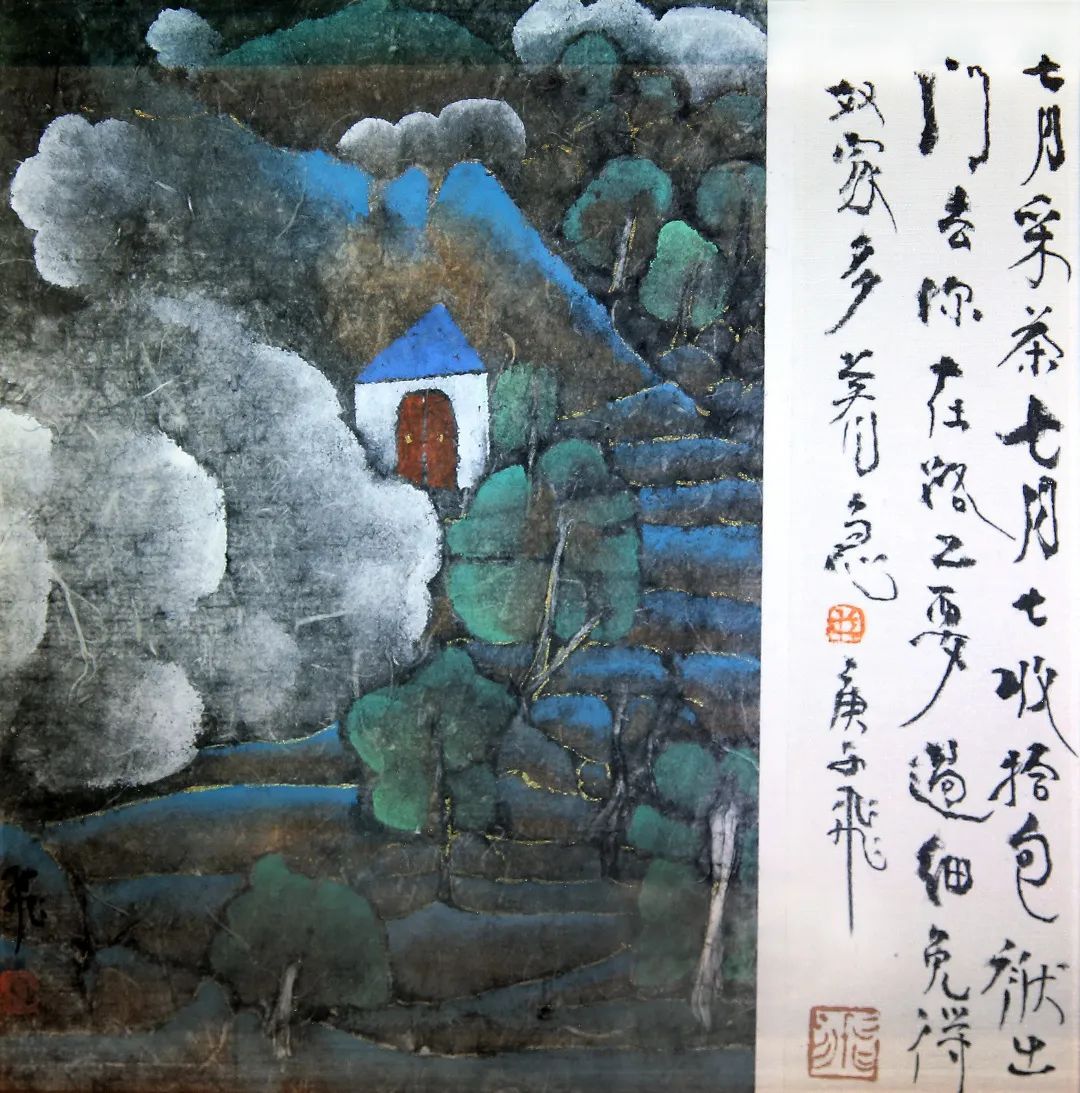 七月采茶七月七收拾包袱出
门去你在路上要過细免得
奴家多着急
庚子飛
飛